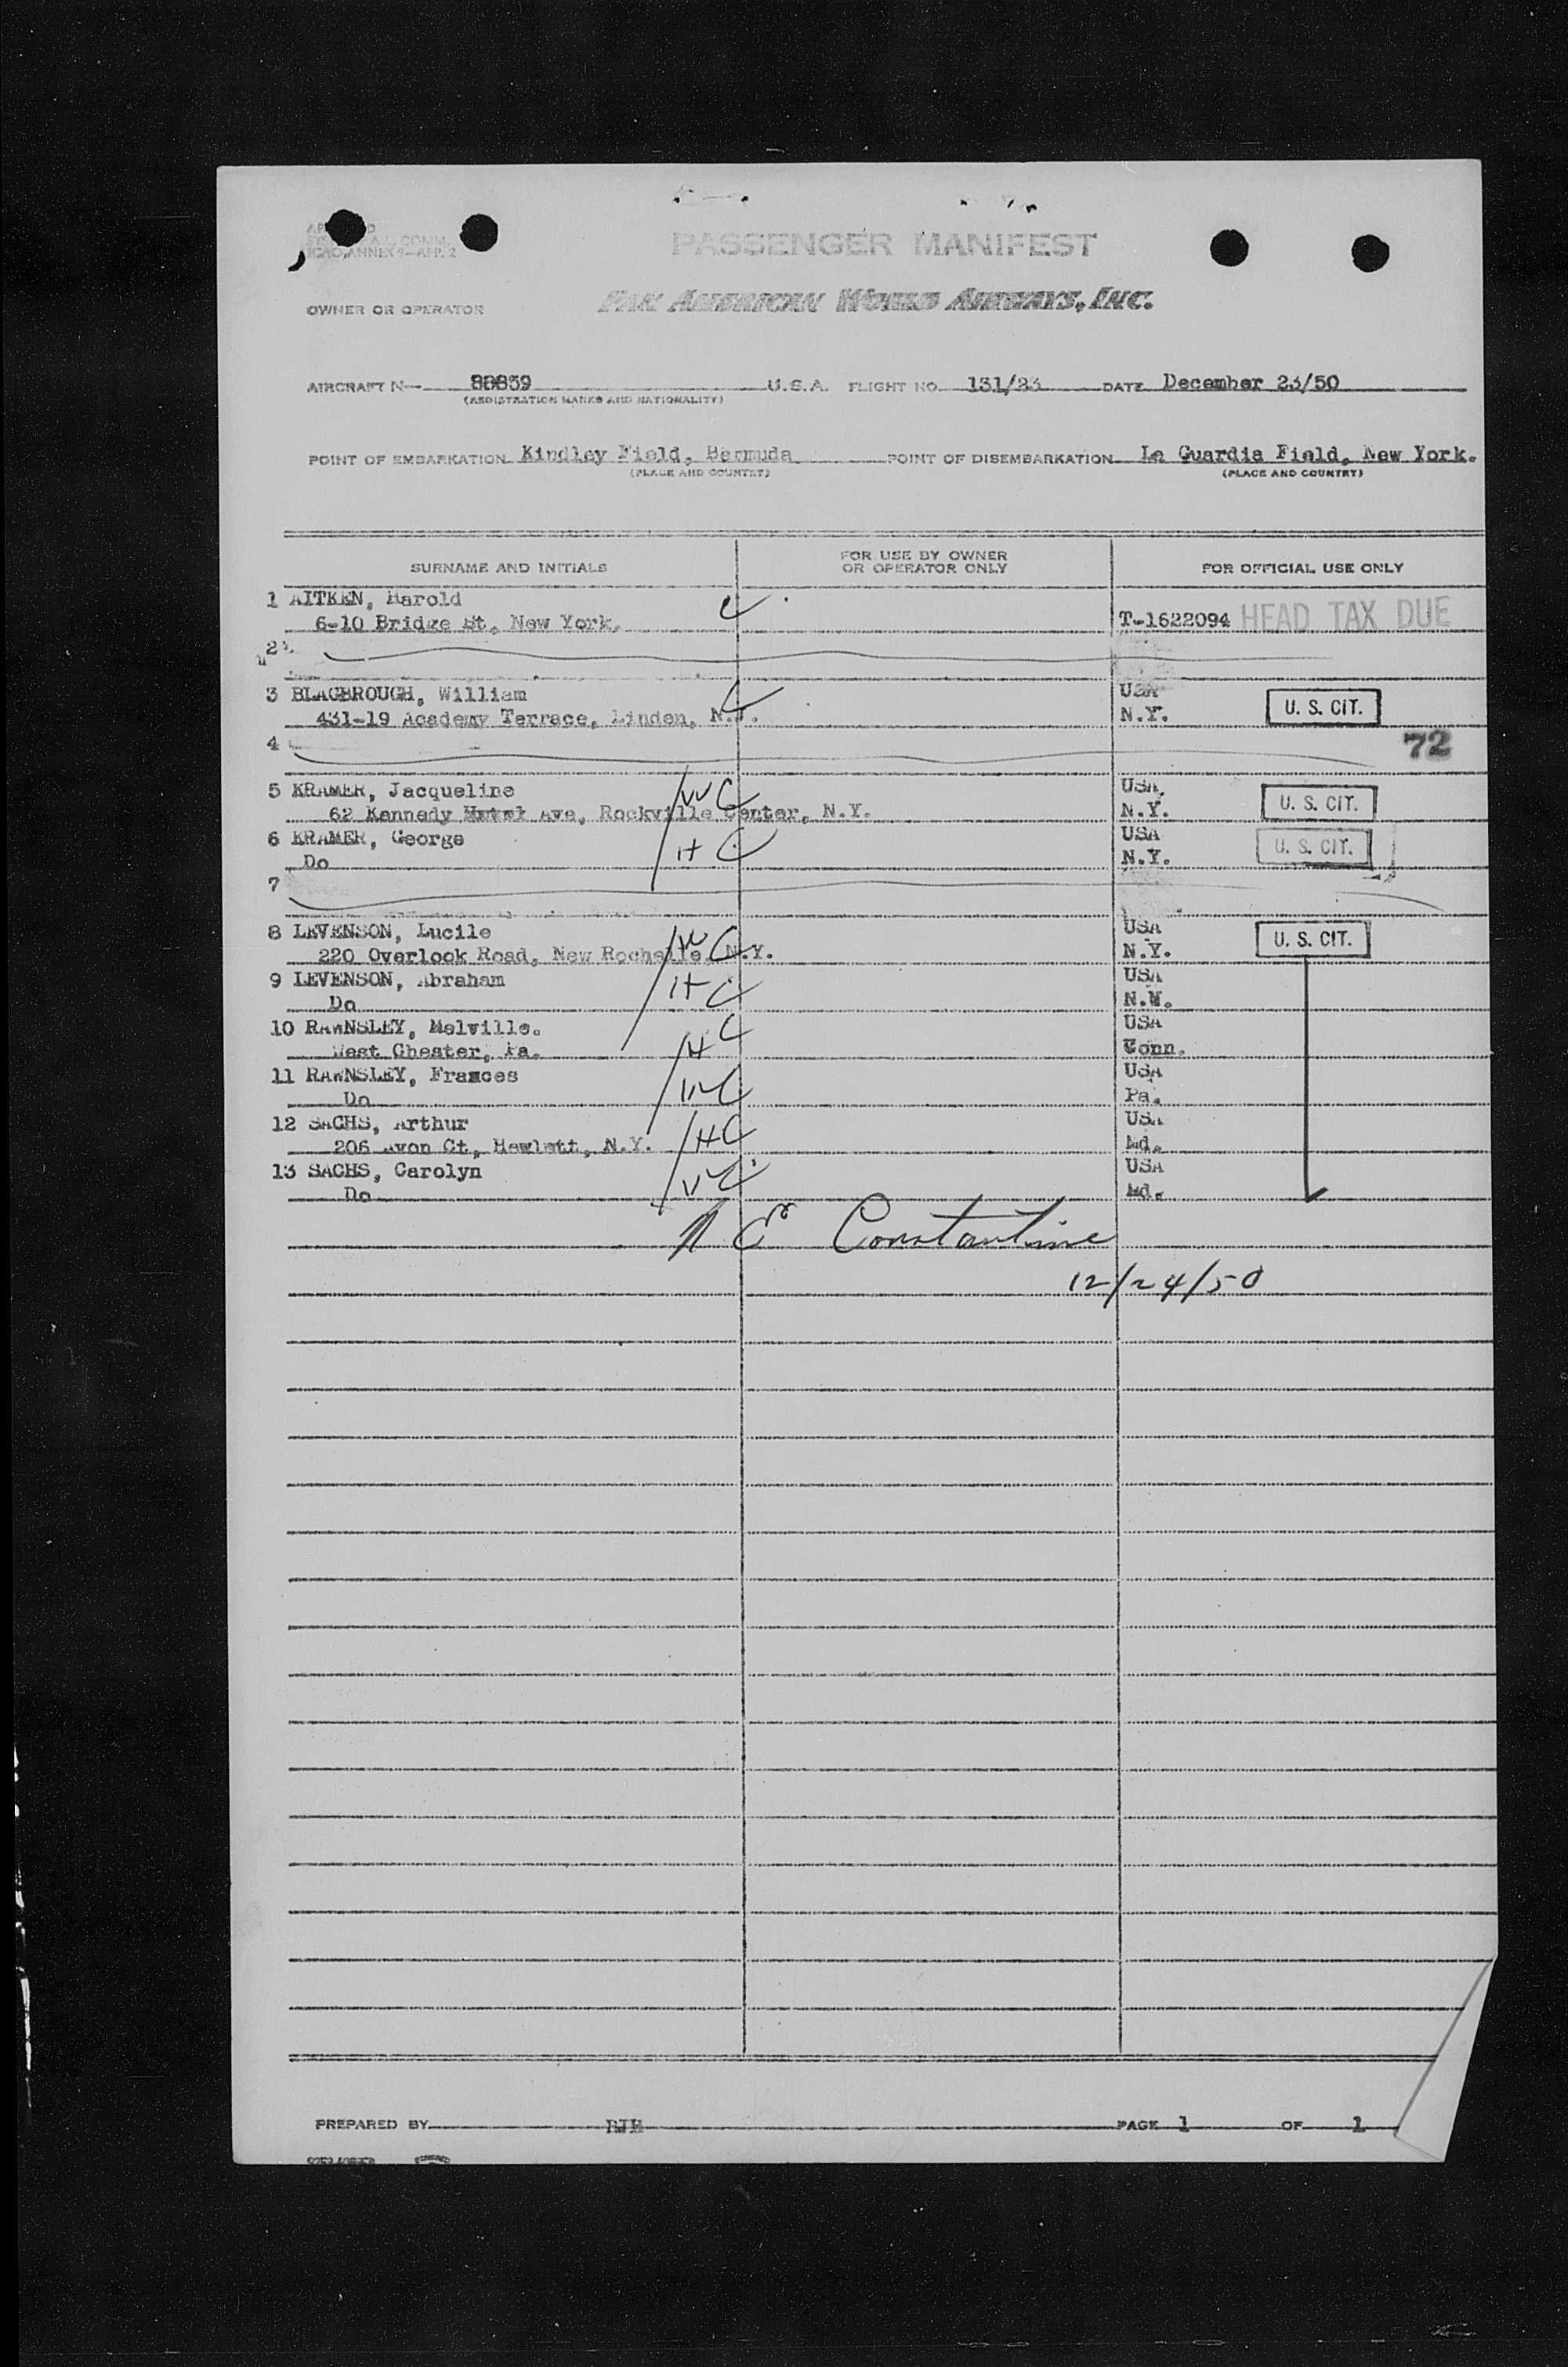 COMM.
ICAO, ANNEX 9—APP. 2
PASSENGER MANIFEST
OWNER OR OPERATOR PAN AMERICAN WORLD AIRWAYS, INC.
AIRCRAFT N— 88859 U.S.A. FLIGHT NO. 131/23 DATE December 23/50
(REGISTRATION MARKS AND NATIONALITY)
POINT OF EMBARKATION Kindley Field, Bermuda POINT OF DISEMBARKATION La Guardia Field, New York.
(PLACE AND COUNTRY) (PLACE AND COUNTRY)
SURNAME AND INITIALS FOR USE BY OWNER OR OPERATOR ONLY FOR OFFICIAL USE ONLY
1 AITKEN, Harold C
6-10 Bridge St, New York. T-1622094 HEAD TAX DUE
2
3 BLAGBROUGH, William C USA
431-19 Academy Terrace, Linden, N.J. N.Y. U. S. CIT.
4 72
5 KRAMER, Jacqueline W C USA
62 Kennedy Ave, Rockville Center, N.Y. N.Y. U. S. CIT.
6 KRAMER, George H C USA
Do N.Y. U. S. CIT.
7
8 LEVENSON, Lucile W C USA
220 Overlook Road, New Rochelle, N.Y. N.Y. U. S. CIT.
9 LEVENSON, Abraham H C USA
Do N.Y.
10 RAWNSLEY, Melville. H C USA
West Chester, Pa. Conn.
11 RAWNSLEY, Frances W C USA
Do Pa.
12 SACHS, Arthur H C USA
206 Avon Ct, Hewlett, N.Y. Md.
13 SACHS, Carolyn W C USA
Do Md.
Constantine
12/24/50
PREPARED BY PAGE 1 OF 1